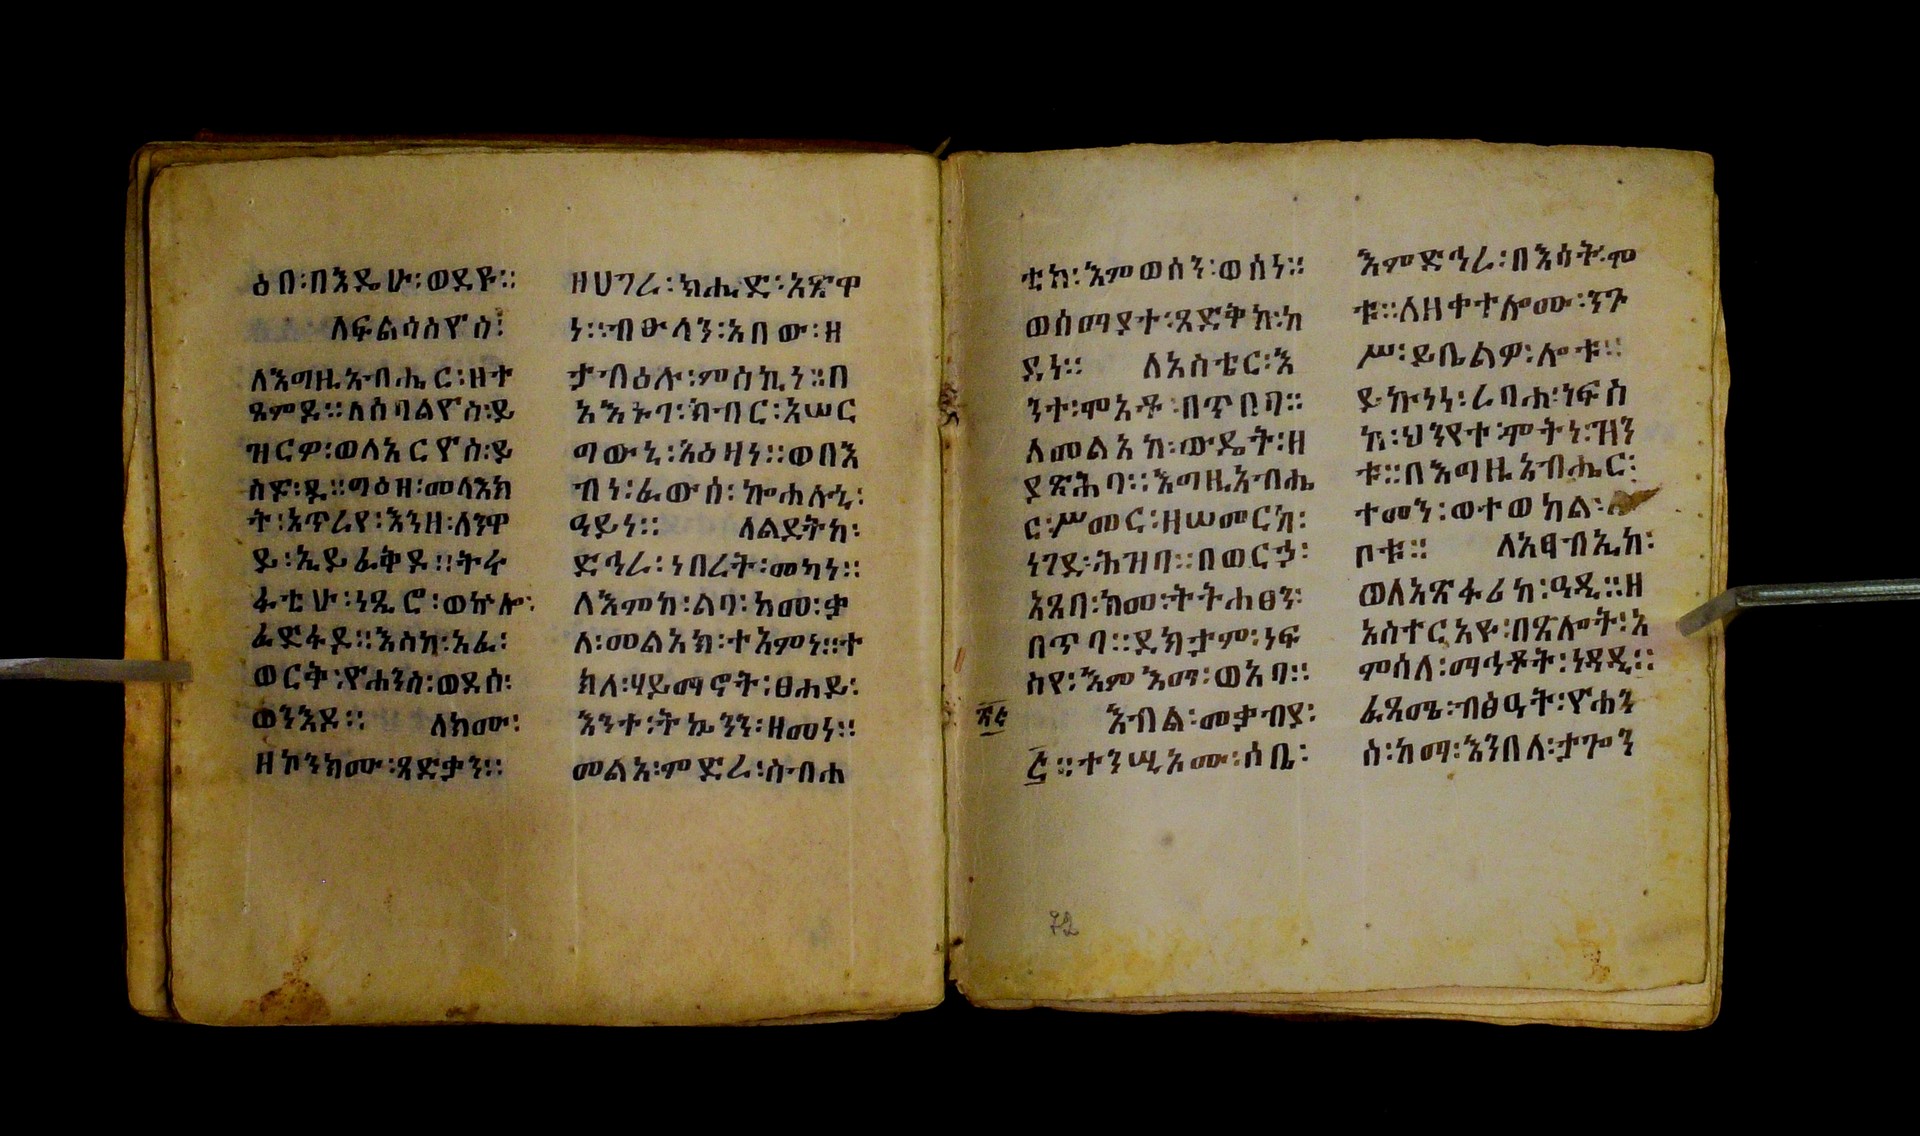 ዕበ፡በእዴሁ፡ወደዮ።
ለፍልሳስዮስ፡
ለእግዚአብሔር፡ዘተ
ጼምዶ።ለሰባልዮስ፡ይ
ዝርዎ፡ወለአርዮስ፡ይ
ስዮ፡ዺ።ግዕዘ፡መላእክ
ት፡አጥረየ፡እንዘ፡ለንዋ
ይ፡ኢይፈቅዶ።ትሩ
ፋቲሁ፡ነጺሮ፡ወኵሎ፡
ፈድፋዶ።እስከ፡አፈ፡
ወርቅ፡ዮሐንስ፡ወደሰ፡
ወንእዶ። ለክሙ፡
ዘኮንክሙ፡ጻድቃን።
ዘሀገረ፡ክሒድ፡አጽዋ
ነ።ብፁዓን፡አበው፡ዘ
ታብዕሉ፡ምስኪነ።በ
አኅኁገ፡ክብር፡አሠር
ግውኒ፡እዕዛነ።ወበእ
ብነ፡ፈውሰ፡ኰሐሉኒ፡
ዓይነ። ለልደትከ፡
ድኅረ፡ነበረት፡መካነ።
ለእምከ፡ልባ፡ከመ፡ቃ
ለ፡መልአክ፡ተአምነ።ተ
ክለ፡ሃይማኖት፡ፀሐይ፡
እንተ፡ትኴንን፡ዘመነ።
መልአ፡ምድረ፡ስብሐ
ቲከ፡እምወሰን፡ወሰነ።
ወሰማያተ፡ጻድቅከ፡ከ
ደነ። ለአስቴር፡እ
ንተ፡ሞአቶ፡በጥበባ።
ለመልአከ፡ውዴት፡ዘ
ያጽሕባ።እግዚአብሔ
ር፡ሥመር፡ዘሠመርከ፡
ነገደ፡ሕዝባ።በወርኃ፡
አጸበ፡ከመ፡ትትሐፀን፡
በጥባ።ደክታም፡ነፍ
ስየ፡እምእማ፡ወአባ።
እብል፡መቃብያ፡
፫።ተንሢአሙ፡ሰቤ፡
እምድኅረ፡በእሳት፡ሞ
ቱ።ለዘቀተሎሙ፡ንጉ
ሥ፡ይቤልዎ፡ሎቱ።
ይኵነነ፡ረባሐ፡ነፍስ
ከ፡ህንየተ፡ሞትነ፡ዝን
ቱ።በእግዚአብሔር፡
ተመን፡ወተወከል፡
ቦቱ። ለአፃብኢከ፡
ወለአጽፋሪከ፡ዓዲ።ዘ
አስተርአዮ፡በጸሎት፡አ
ምሰለ፡ማኅቶት፡ነዳዲ።
ፈጻሜ፡ብፅዓት፡ዮሐን
ስ፡ከማ፡እንበለ፡ታጐን
72